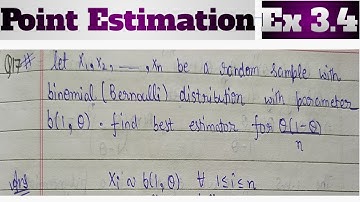 Point Estimation Ex 3.4
Q17# let x₁, x₂, —, xn be a random sample with
binomial (Bernoulli) distribution with parameter
b(1, θ). find best estimator for θ(1-θ)
n
Ans Xi ~ b(1, θ) ∀ 1≤i≤n